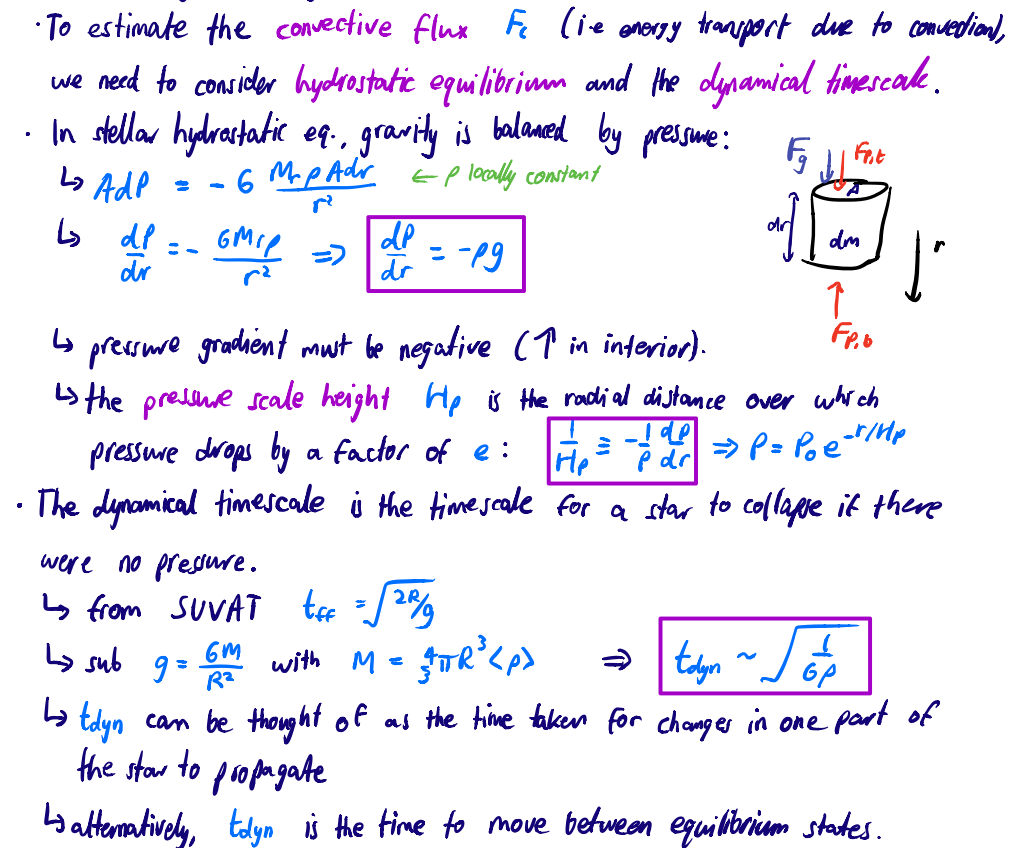 · To estimate the convective flux F_c (i.e energy transport due to convection),
we need to consider hydrostatic equilibrium and the dynamical timescale.
· In stellar hydrostatic eq., gravity is balanced by pressure:
↳ AdP = - G M_r ρ A dr / r² ← ρ locally constant
↳ dP/dr = - G M_r ρ / r² ⇒ dP/dr = -ρg
F_g F_{P,t}
A
dr dm r
F_{P,b}
↳ pressure gradient must be negative (↑ in interior).
↳ the pressure scale height H_P is the radial distance over which
pressure drops by a factor of e: 1/H_P ≡ - 1/P dP/dr ⇒ P = P_0 e^{-r/H_P}
· The dynamical timescale is the timescale for a star to collapse if there
were no pressure.
↳ from SUVAT t_ff = √(2R/g)
↳ sub g = GM/R² with M = 4/3 π R³ <ρ> ⇒ t_dyn ~ √(1/Gρ)
↳ t_dyn can be thought of as the time taken for changes in one part of
the star to propagate
↳ alternatively, t_dyn is the time to move between equilibrium states.